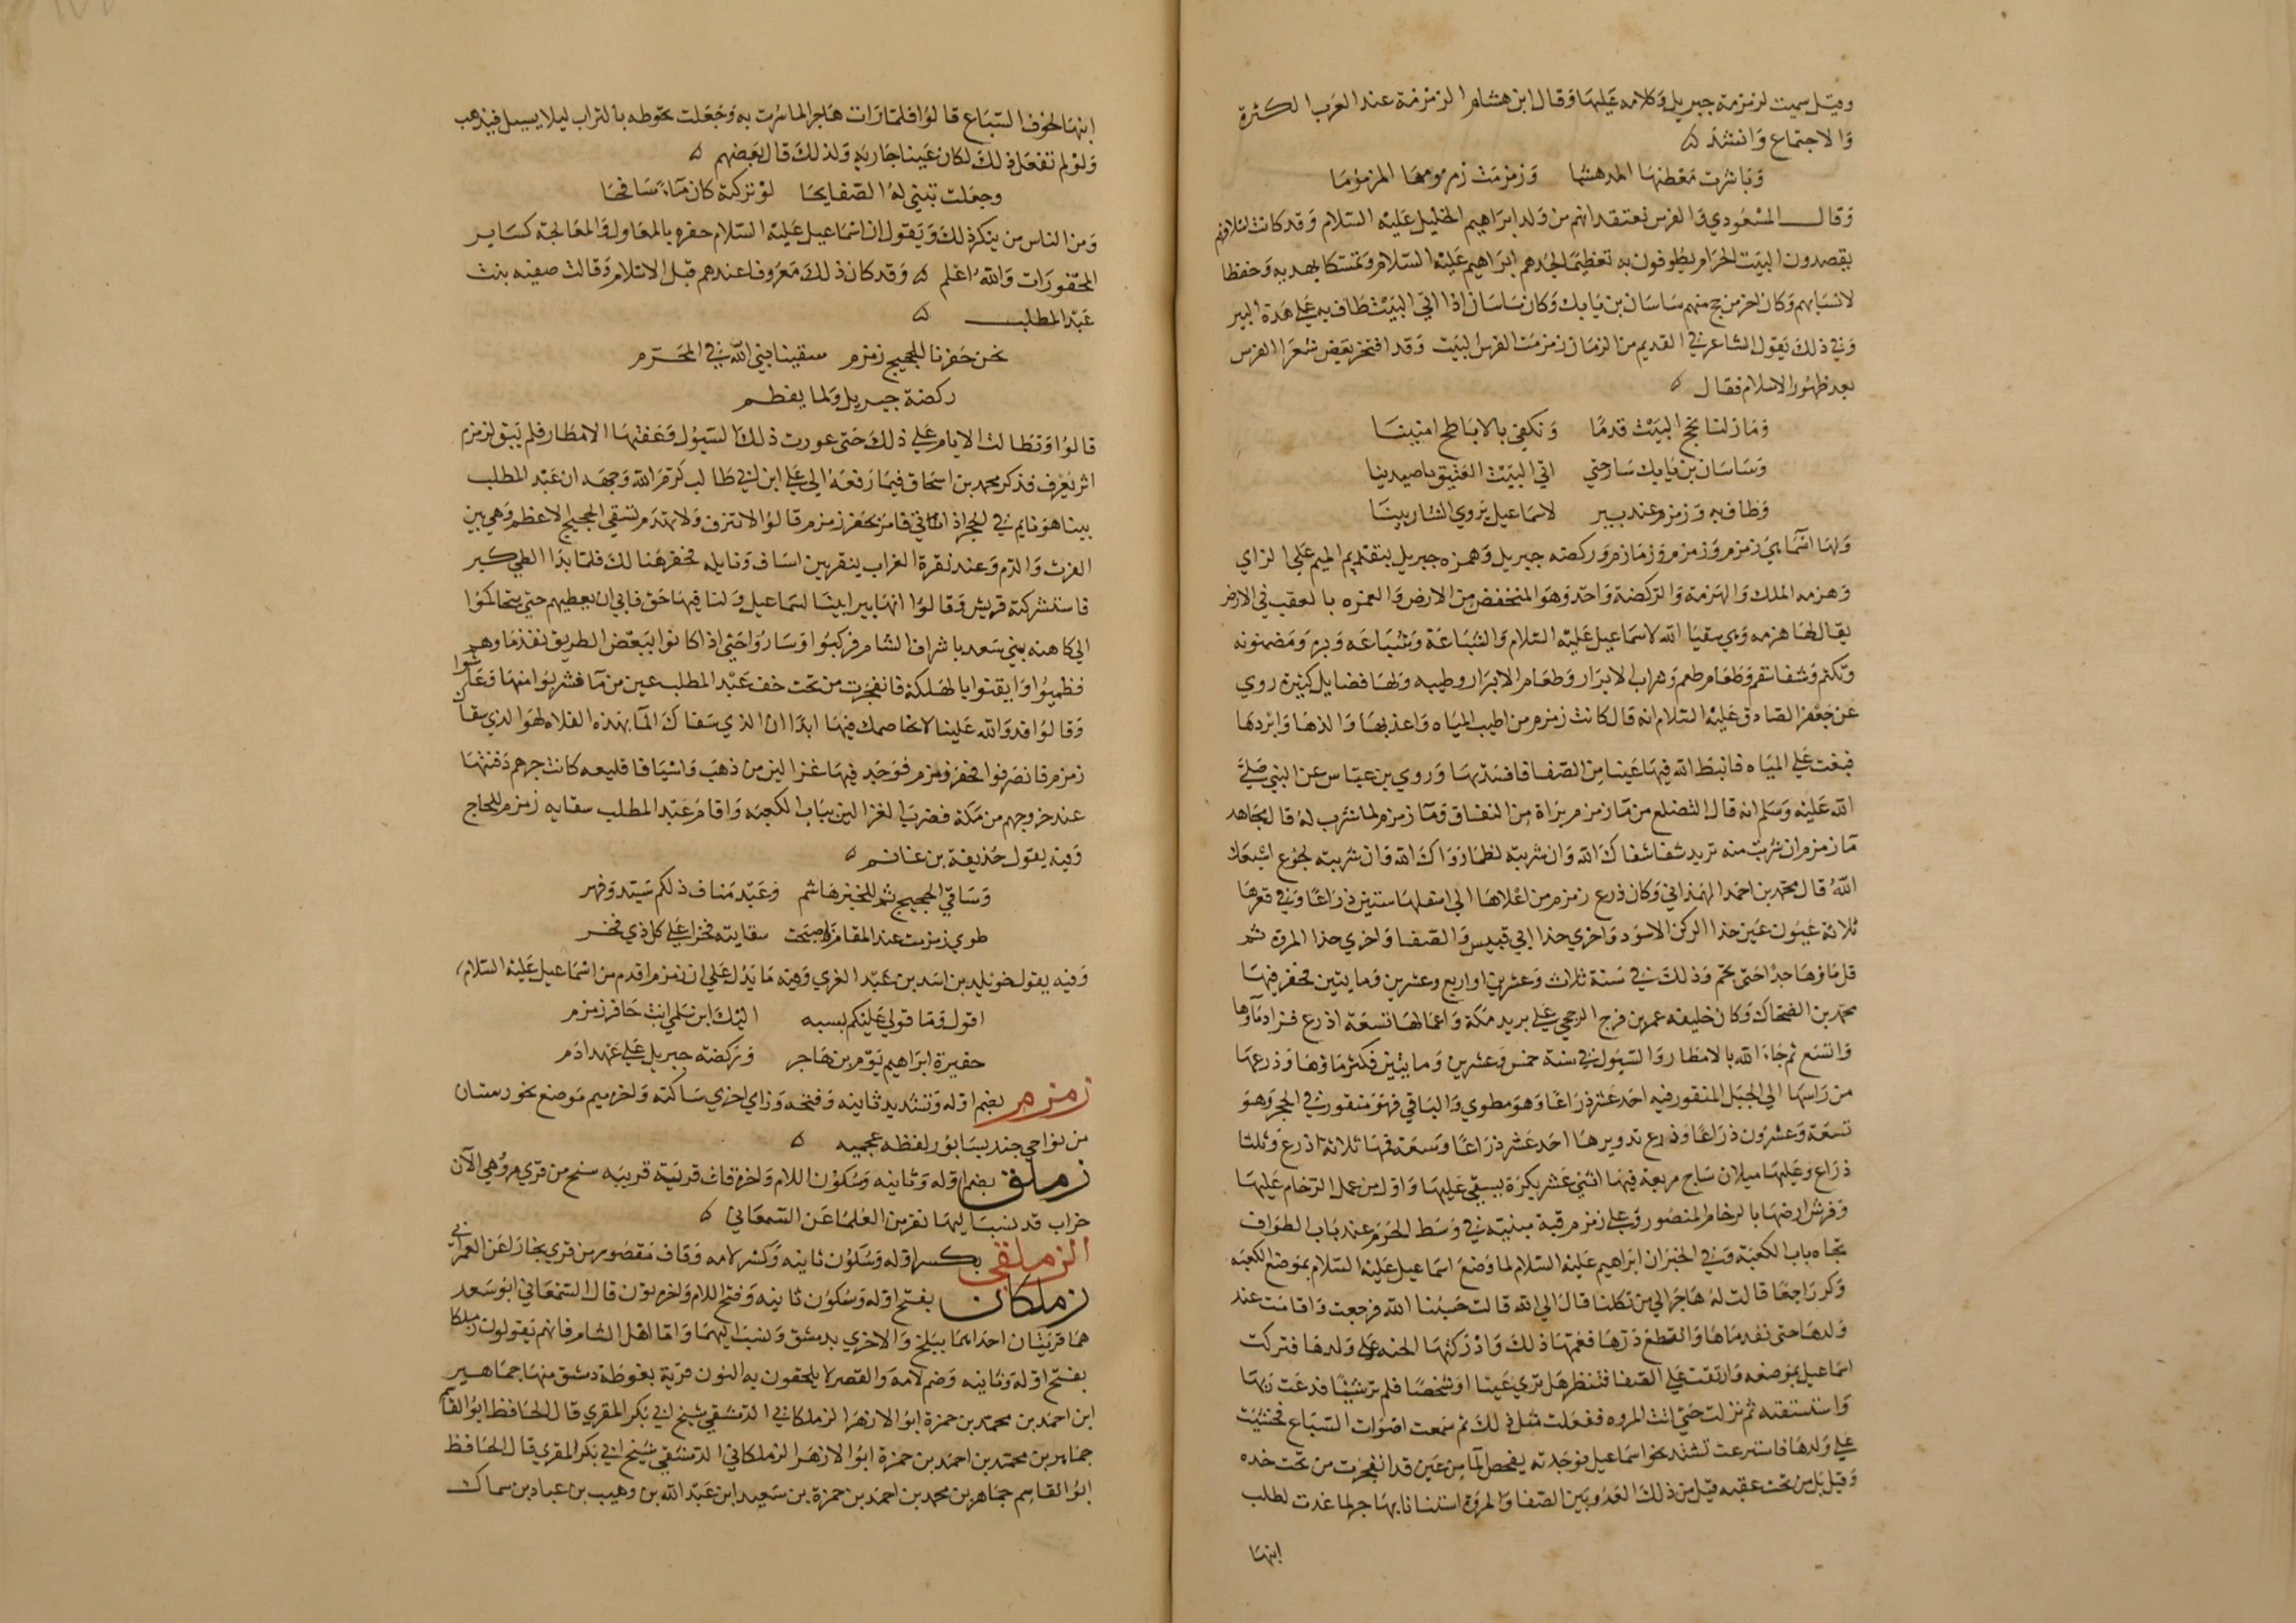 وقيل سميت لزمزمة جبريل وكلامه عليها وقال ابن هشام الزمزمة عند العرب الكثرة
والاجتماع وانشد ه
وباشرت معطنها المدهشما وزمزمت زمزومها المزموما
وقال المسعودي والفرس تعتقد انهم من ولد ابراهيم الخليل عليه السلام وقد كانت اسلافهم
يقصدون البيت الحرام يطوفون به تعظيما لجدهم ابراهيم عليه السلام وتمسكا بهديه وحفظا
لانسابهم وكان اخر من حج منهم ساسان بن بابك وكان ساسان اذا اتي البيت طاف به علي هذه البير
وفي ذلك يقول الشاعر في القديم من الزمان زمزمت الفرس البيت وقد افتخر بعض شعرا الفرس
بعد ظهور الاسلام فقال ه
وما زلنا نحج البيت قدما ونكفي بالاباطح امنينا
وساسان بن بابك سار حتي اتي البيت العتيق باصيدينا
وطاف به وزمزم عند بير لاسماعيل يروي الشاربينا
ولها اسما هي زمزم وزمزم وزمازم وركضه جبريل وهمزه جبريل بتقديم الميم علي الزاي
وهزمه الملك والهزمة والركضة واحد وهو المنخفض من الارض والغمزه بالعقب في الارض
يقال لها هزمه وهي سقيا الله لاسماعيل عليه السلام والشباعة وشباعه وبره ومضنونه
وتكتم وشفا سقم وطعام طعم وشراب الابرار وطعام الابرار وطيبه ولها فضايل كثيرة روي
عن جعفر الصادق عليه السلام انه قال كانت زمزم من اطيب المياه واعذبها والذها وابردها
فبغت علي المياه فانبط الله فيها عينا من الصفا فافسدتها وروي بن عباس عن النبي صلي
الله عليه وسلم انه قال التضلع من ما زمزم براة من النفاق وما زمزم لما شرب له قال مجاهد
ما زمزم ان شربت منه تريد شفا شفاك الله وان شربته لظما رواك الله وان شربته لجوع اشبعك
الله قال محمد بن احمد الهمذاني وكان ذرع زمزم من اعلاها الي اسفلها ستين ذراعا وفي قعرها
ثلاثة عيون عين حذا الركن الاسود واخري حذا ابي قبيس والصفا واخري حذا المروة ثم
قل ماوها جدا حتي تجم وذلك في سنة ثلاث وعشرين او اربع وعشرين ومايتين فحفر فيها
محمد بن الضحاك وكان خليفه عمر بن فرج الرجحي علي بريد مكة واعمالها تسعة اذرع فزاد ماوها
واتسع ثم جاء الله بالامطار والسيول في سنة خمس وعشرين ومايتين فكثر ماؤها وذرعها
من راسها الي الجبل المنقور فيه احد عشر ذراعا وهو مطوي والباقي فهو منقور في الحجر وهو
تسعة وعشرون ذراعا وذرع تدويرها احد عشر ذراعا وسعة فمها ثلاثة اذرع وثلثا
ذراع وعليها ميلان ساج مربعة فيها اثني عشر بكرة يستقي عليها واول من عمل الرخام عليها
وفرش ارضها بالرخام المنصور وعلي زمزم قبة مبنيه في وسط الحرم عند باب الطواف
تجاه باب الكعبة وفي الخبر ان ابراهيم عليه السلام لما وضع اسماعيل عليه السلام بموضع الكعبه
وكر راجعا قالت له هاجر الي من تكلنا قال الي الله قالت حسبنا الله فرجعت واقامت عند
ولدها حتي نفد ماها وانقطع درها فغمها ذلك وادركتها الحنه علي ولدها فتركت
اسماعيل بموضعه وارتقت علي الصفا فتنظر هل تري عينا او شخصا فلم تر شيئا فدعت ربها
واستسقته ثم نزلت حتي اتت المروه ففعلت مثل ذلك ثم سمعت اصوات السباع فخشيت
علي ولدها فاسرعت تشتد نحو اسماعيل فوجدته يفحص الما من عين قد انفجرت من تحت خده
وقيل بل من تحت عقبه قيل من ذلك العدو بين الصفا والمروة استنانا بهاجر لما غدت لطلب
ابنها
ابنها لخوف السباع قالوا فلما رات هاجر الما سرت به وجعلت تحوطه بالتراب ليلا يسيل فيذهب
ولو لم تفعل ذلك لكان عينا جاريه ولذلك قال بعضهم ه
وجعلت تبني له الصفايحا لو تركته كان ماء سافحا
ومن الناس من ينكر ذلك ويقول ان اسماعيل عليه السلام حفره بالمعاول والمعالجة كساير
المحفورات والله اعلم ه وقد كان ذلك معروفا عندهم قبل الاسلام وقالت صفيه بنت
عبد المطلب ه
نحن حفرنا للحجيج زمزم سقينا نبي الله في المحترم
ركضة جبريل ولما يفطم
قالوا وتطالت الايام علي ذلك حتي عورت ذلك السيول وعفتها الامطار فلم يبق لزمزم
اثر يعرف فذكر محمد بن اسحاق فيما رفعه الي علي ابن ابي طالب كرم الله وجهه ان عبد المطلب
بينا هو نايم في الحجر اذ اتاني فامر بحفر زمزم قالوا لا تنزف ولا تهدم تسقي الحجيج الاعظم وهي بين
الفرث والدم وعند نقرة الغراب ينقر بين اساف ونايله فحفر هنالك فلما بدا الطي كبر
فاستشركته قريش وقالوا انها بير ابينا اسماعيل ولنا فيها حق فابي ان يعطيهم حتي يتحاكموا
الي كاهنه بني سعد باشراف الشام فركبوا وساروا حتي اذا كانوا ببعض الطريق نفذ ماوهم
فظميوا وايقنوا بالهلكة فانفجرت من تحت خف عبد المطلب عين من ما فشربوا منها وعاشوا
وقالوا قد والله علينا لا نخاصمك فيها ابدا ان الذي سقاك الما بهذه الفلاه لهو الذي سقاك
زمزم فانصرفوا فحفر زمزم فوجد فيها غزالين من ذهب واسيافا قليعه كانت جرهم دفنتها
عند خروجهم من مكة فضرب الغزالين بباب الكعبه واقام عبد المطلب سقايه زمزم للحاج
وفيه يقول حذيفة بن غانم ه
وساقي الحجيج ثم للخبز هاشم وعبد مناف ذلكم سيد وفهر
طوي زمزمت عند المقام واصبحت سقايته فخرا علي كل ذي فخر
وفيه يقول خويلد بن اسد بن عبد العزي وفيه ما يدل علي ان زمزم اقدم من اسماعيل عليه السلام
اقول وما قولي عليكم بسبه اليك ابن سلمي انت حافر زمزم
حفيرة ابراهيم يوم بن هاجر وركضة جبريل علي عهد ادم
زمزم بضم اوله وتشديد ثانيه وفتحه وزاي اخري ساكنه واخره ميم موضع بخورستان
من نواحي جنديسابور لفظه عجميه ه
زملق بضم اوله وثانيه وسكون اللام واخره قاف قرية قريبه سنج من قري مرو وهي الآن
خراب قد نسب اليها نفر من العلما عن السمعاني ه
الزملقي بكسر اوله وسكون ثانيه وكسر لامه وقاف مقصور من قري بخارا عن العمراني
زملكان بفتح اوله وسكون ثانيه وفتح اللام واخره نون قال السمعاني ابو سعد
هما قريتان احداهما ببلخ والاخري بدمشق ونسب اليهما واما اهل الشام فانهم يقولون زملكا
بفتح اوله وثانيه وضم لامه والقصر لا يلحقون به النون قرية بغوطة دمشق منها جماهير
ابن احمد بن محمد بن حمزة ابو الازهر الزملكاني الدمشقي شيخ ابي بكر المقري قال الحافظ ابو القاسم
جماهر بن محمد بن احمد بن حمزة ابو الازهر الزملكاني الدمشقي شيخ ابي بكر المقري قال الحافظ
ابو القاسم جماهر بن محمد بن احمد بن حمزة بن سعيد ابن عبد الله بن وهيب بن عباد بن سماك